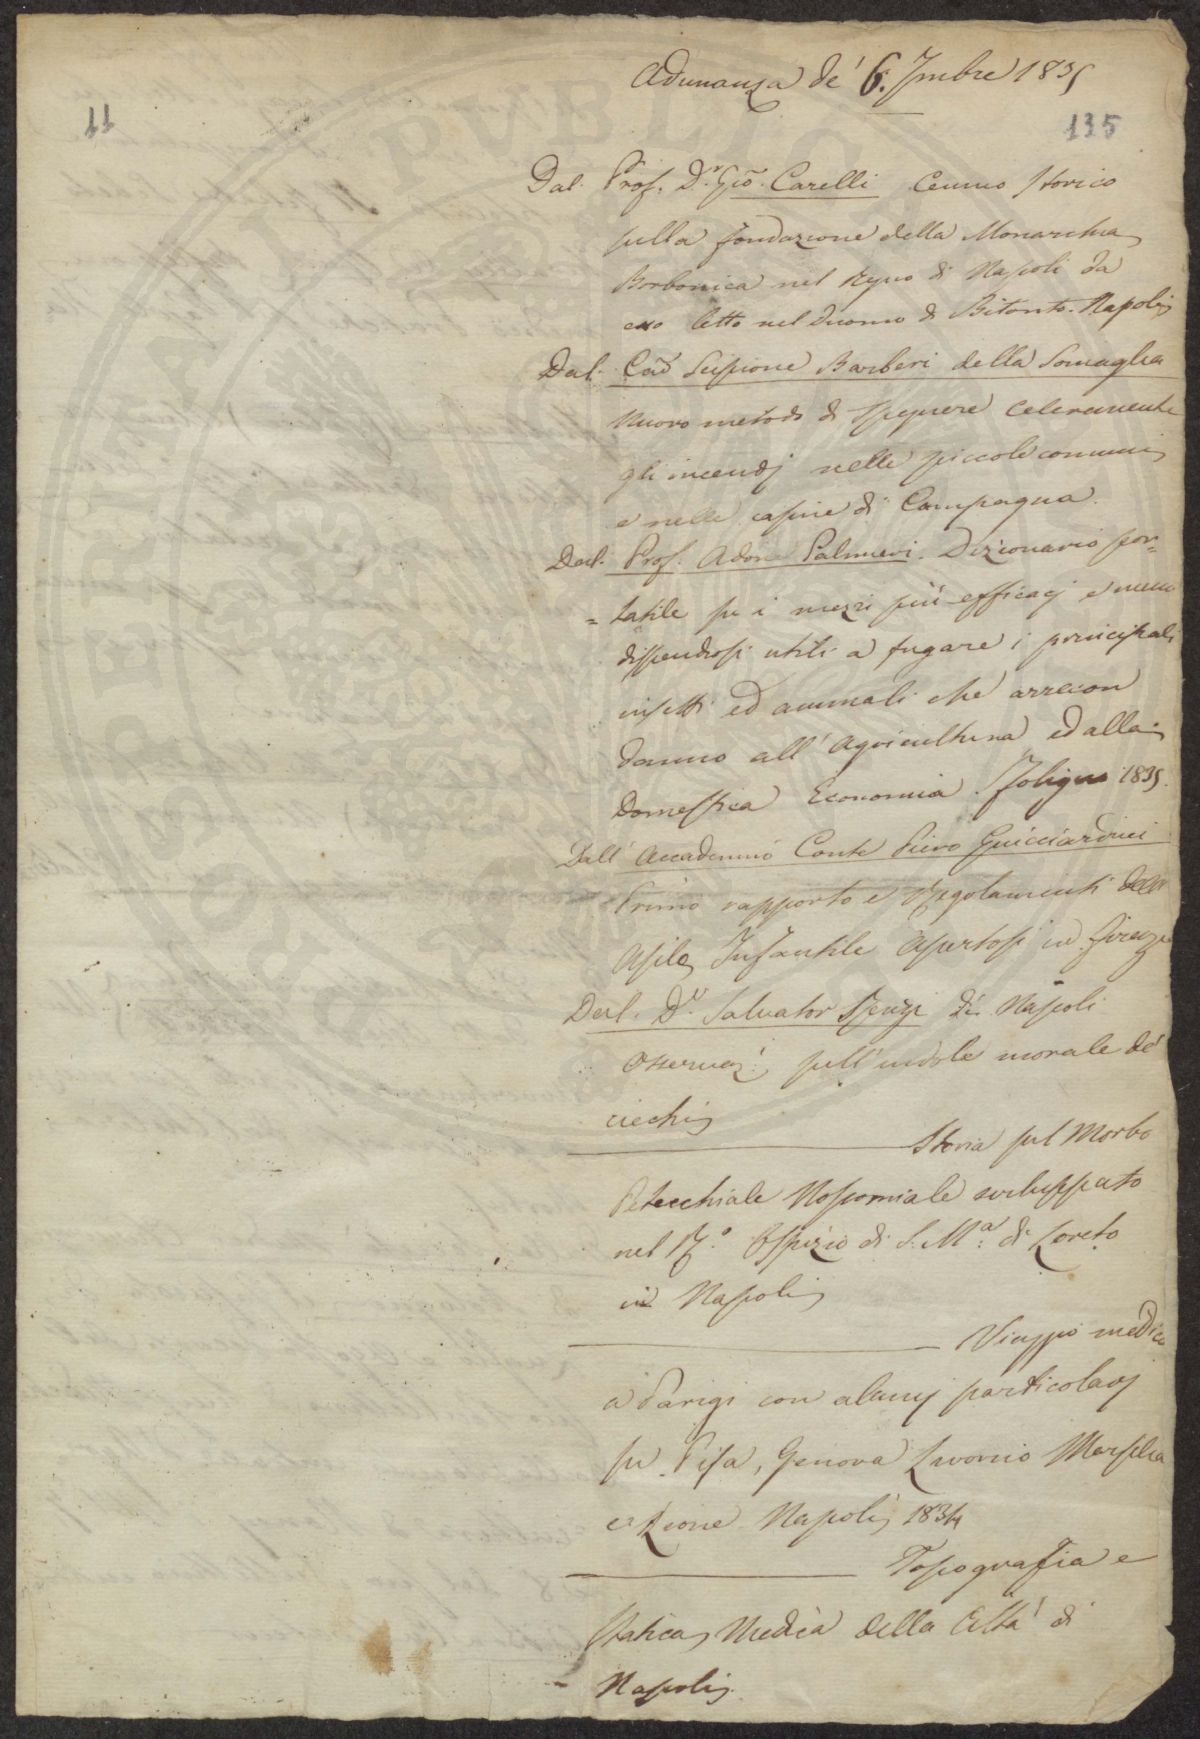 Adunanza de' 6. 7mbre 1835
135
11
Dal. Prof. D.r Gio. Carelli Cenno storico
sulla fondazione della Monarchia
Borbonica nel Regno di Napoli da
esso letto nel Duomo di Bitonto. Napoli
Dal. Cav Scipione Barberi della Somaglia
Nuovo metodo di spegnere celeramente
gli incendj nelle piccole comuni
e nelle casine di Campagna.
Dal. Prof. Adone Palmieri. Dizionario por=
=tatile su i mezzi più efficacj e meno
dispendiosi utili a fugare i principali
insetti ed animali che arrecon
danno all'Agricultura ed alla
Domestica Economia. Foligno 1835.
Dall' Accademico Conte Piero Guicciardini
Primo rapporto e Regolamenti dell'
Asilo Infantile Apertosi in Firenze
Dal. D.r Salvator Renzi di Napoli
Osservaz.i sull'indole morale de'
ciechi
Storia sul Morbo
Petecchiale Nosocomiale sviluppato
nel R.o Ospizio di S. M.a di Loreto
in Napoli
Viaggio medico
a Parigi con alcuni particolarj
su Pisa, Genova Livorno Marsilia
e Lione Napoli 1834
Topografia e
Statica Medica della Città di
Napoli